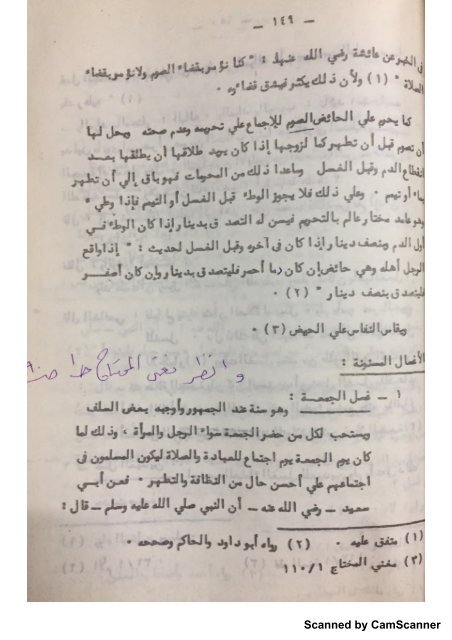 — ١٤٩ —
في الخبر عن عائشة رضي الله عنها : " كنا نؤمر بقضاء الصوم ولا نؤمر بقضاء
الصلاة " (١) ولأن ذلك يكثر فيشق قضاءه .
كما يحرم علي الحائض الصوم للإجماع علي تحريمه وعدم صحته ويحل لها
أن تصوم قبل أن تطهر كما لزوجها إذا كان يريد طلاقها أن يطلقها بعد
إنقطاع الدم وقبل الغسل وماعدا ذلك من المحرمات فهو باق إلي أن تطهر
بماء أو تيمم . وعلي ذلك فلا يجوز الوطء قبل الغسل أو التيمم فإذا وطيء
وهو عامد مختار عالم بالتحريم فيسن له التصدق بدينار إذا كان الوطء في
أول الدم وبنصف دينار إذا كان في آخره وقبل الغسل لحديث : " إذا واقع
الرجل أهله وهي حائض إن كان دما أحمر فليتصدق بدينار وإن كان أصفر
فليتصدق بنصف دينار " (٢) .
ويقاس النفاس علي الحيض (٣) .
الأغسال المسنونة :
وانظر مغني المحتاج
١ – غسل الجمعة : وهو سنة عند الجمهور وأوجبه بعض السلف
ويستحب لكل من حضر الجمعة سواء الرجل والمرأة ، وذلك لما
كان يوم الجمعة يوم اجتماع للعبادة والصلاة ليكون المسلمون في
اجتماعهم علي أحسن حال من النظافة والتطهر . فعن أبي
سعيد – رضي الله عنه – أن النبي صلي الله عليه وسلم – قال :
(١) متفق عليه . (٢) رواه أبو داود والحاكم وصححه .
(٣) مغني المحتاج ١١٠/١
Scanned by CamScanner